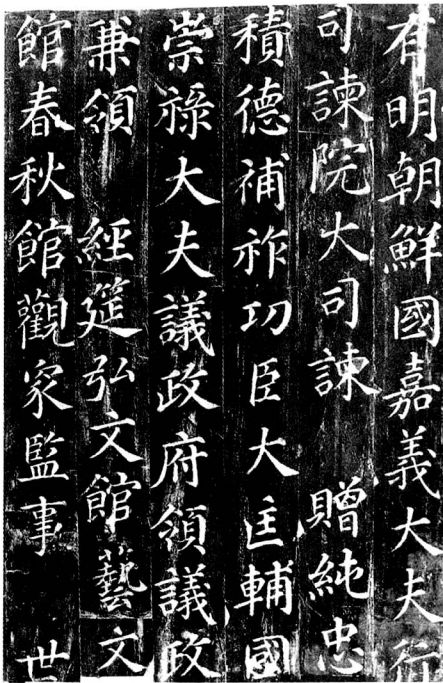 有明朝鮮國嘉義大夫行
司諫院大司諫 贈純忠
積德補祚功臣大匡輔國
崇祿大夫議政府領議政
兼領 經筵弘文館藝文
館春秋館觀象監事 世